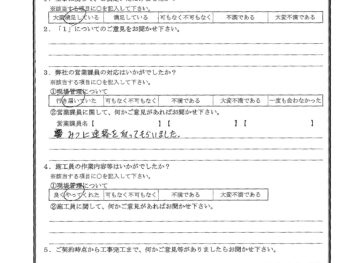 ※該当する項目に○を記入して下さい。
大変満足している 満足している 可もなく不可もなく 不満である 大変不満である
2．「1」についてのご意見をお聞かせ下さい。
3．弊社の営業課員の対応はいかがでしたか？
※該当する項目に○を記入して下さい。
①現場管理について
行き届いていた 可もなく不可もなく 不満である 大変不満である 一度も会わなかった
②営業課員に関して、何かご意見があればお聞かせ下さい。
営業課員名【 】【 】【 】
みつに連絡を取ってもらいました。
4．施工員の作業内容等はいかがでしたか？
※該当する項目に○を記入して下さい。
①現場管理について
良くやってくれた 可もなく不可もなく 不満である 大変不満である
②施工員に関して、何かご意見があればお聞かせ下さい。
5．ご契約時点から工事完工まで、何かご意見等がありましたらお聞かせ下さい。